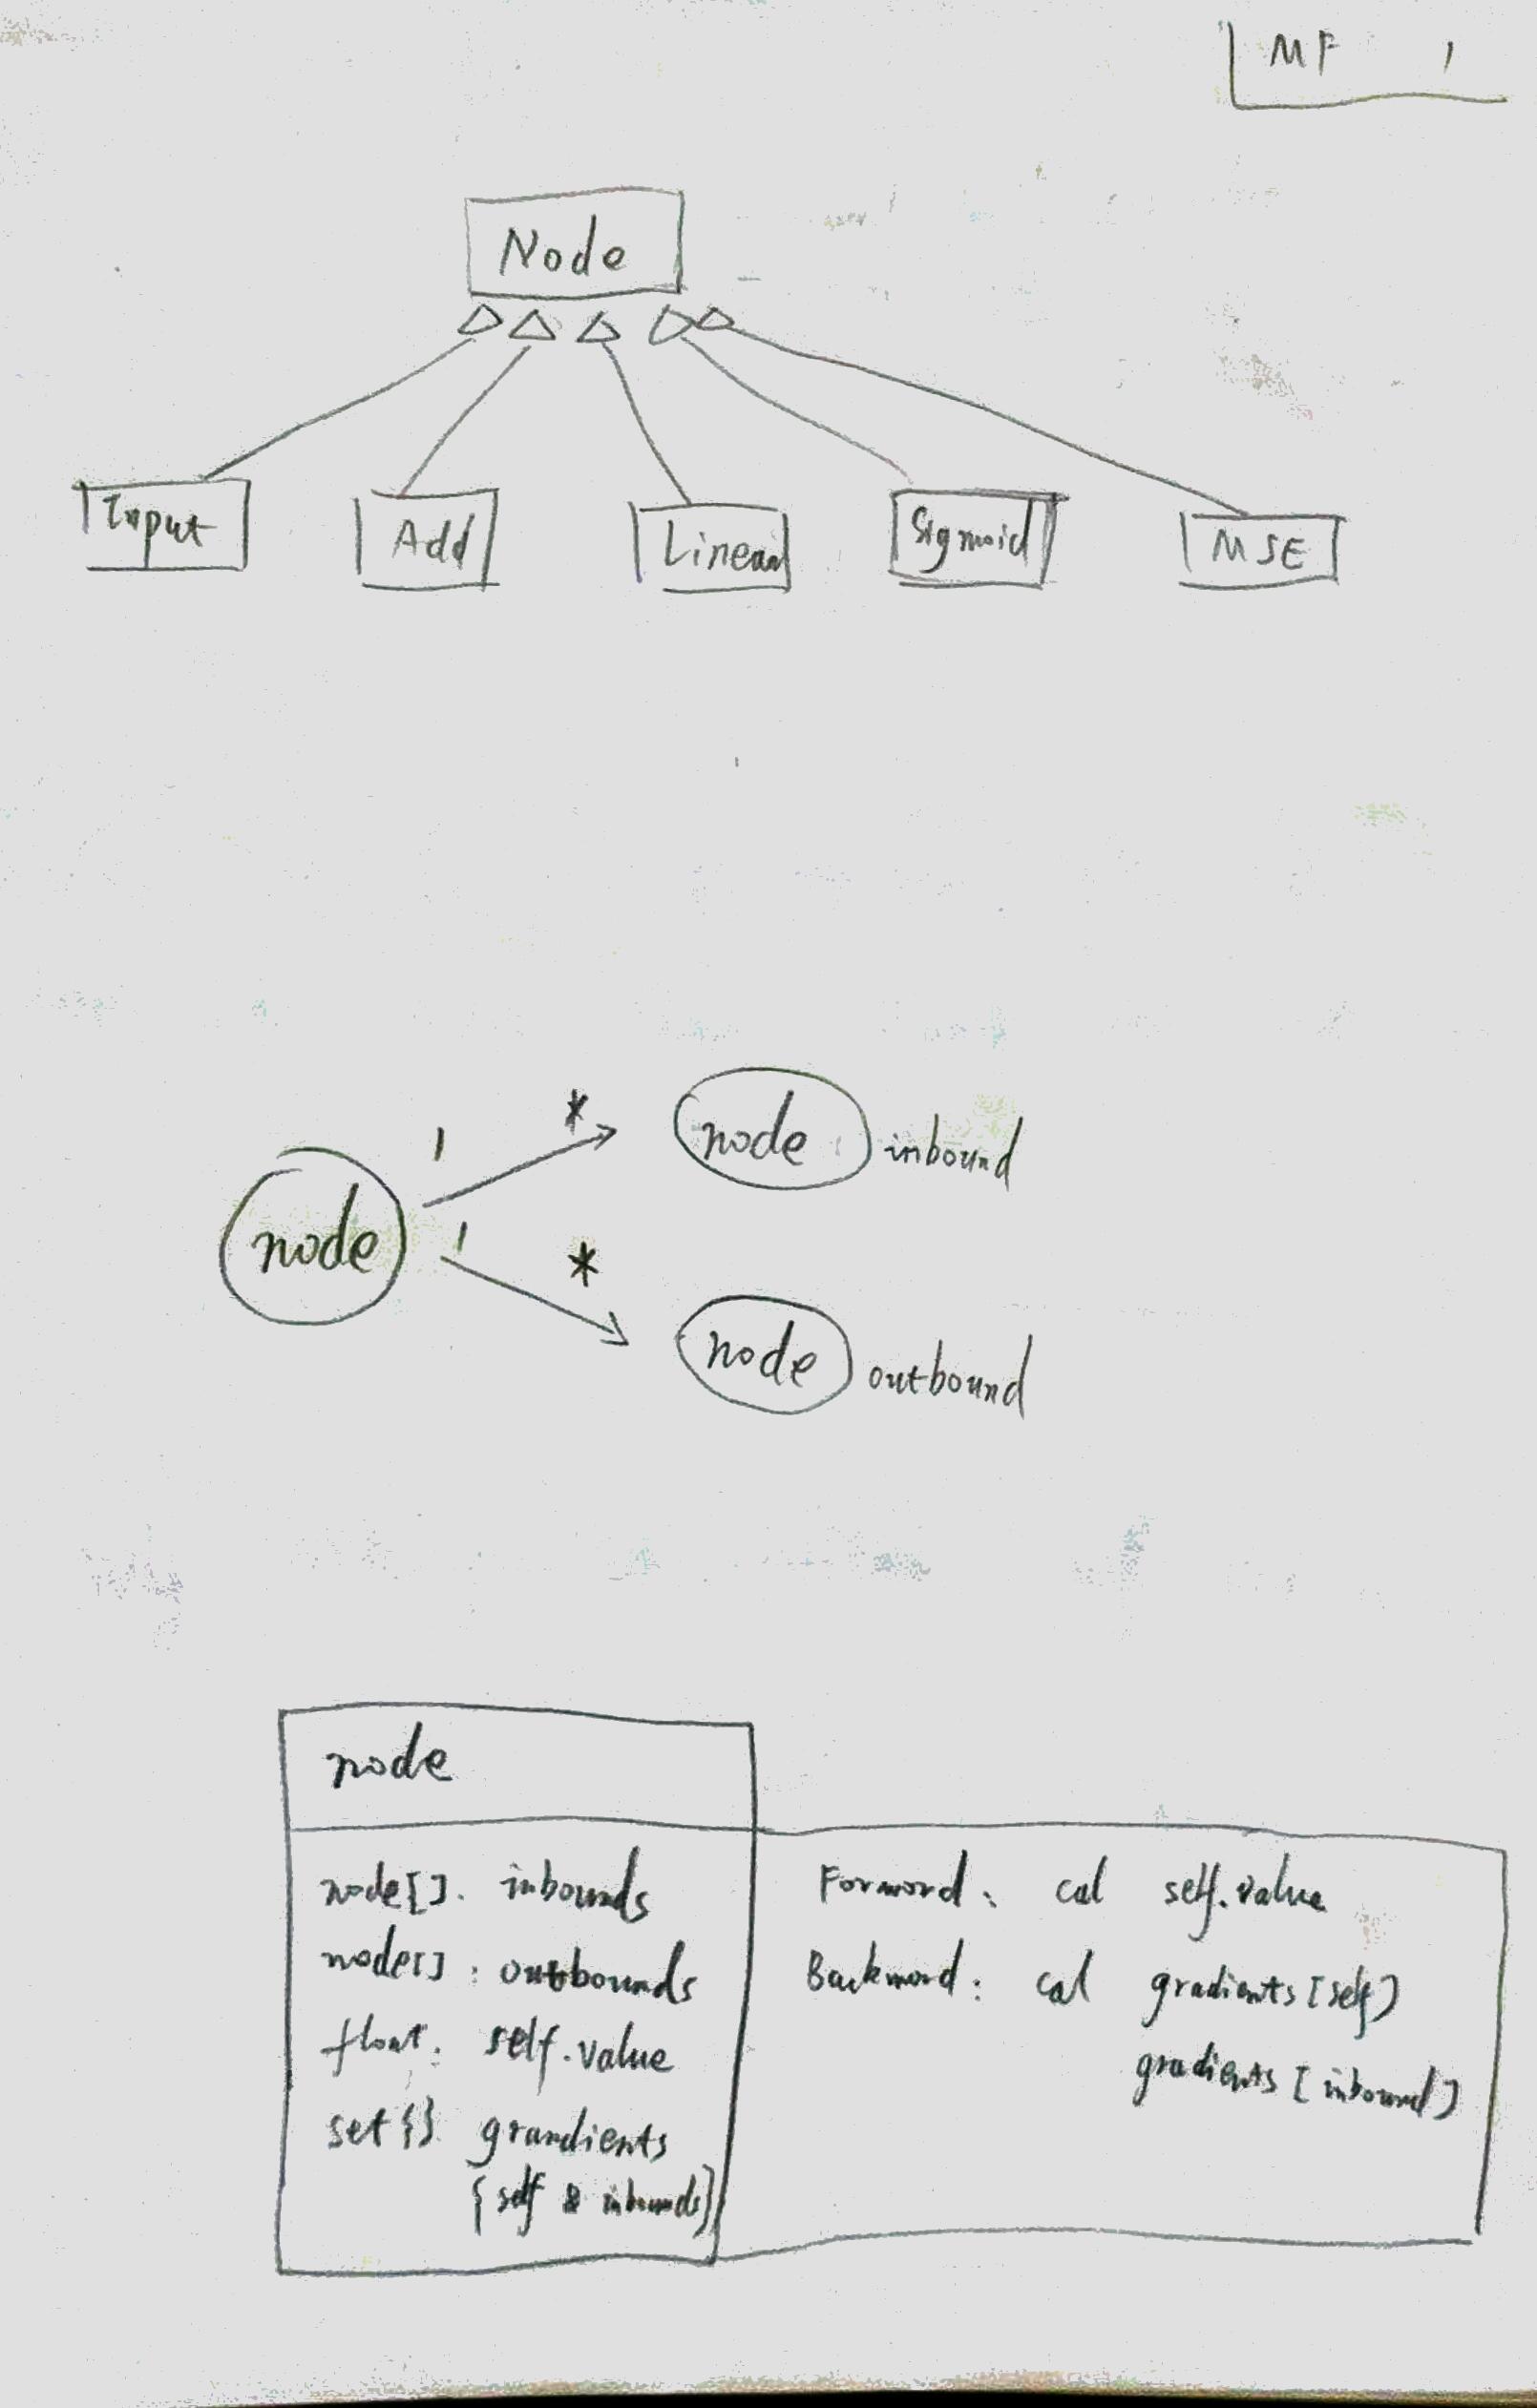 MF 1
Node
Input Add Linear Sigmoid MSE
1 * node inbound
node
1 * node outbound
node
node[]. inbounds
node[] : outbounds
float: self.value
set{} grandients
{self & inbounds}
Forword: cal self.value
Backword: cal gradients[self]
gradients [inbound]